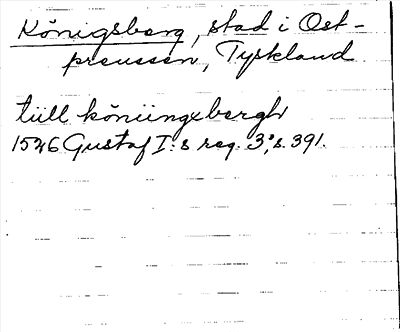 Königsberg, stad i Ost-
preussen, Tyskland.
tiill köniingxbergh
1526 Gustaf I:s reg. 3, s. 391.